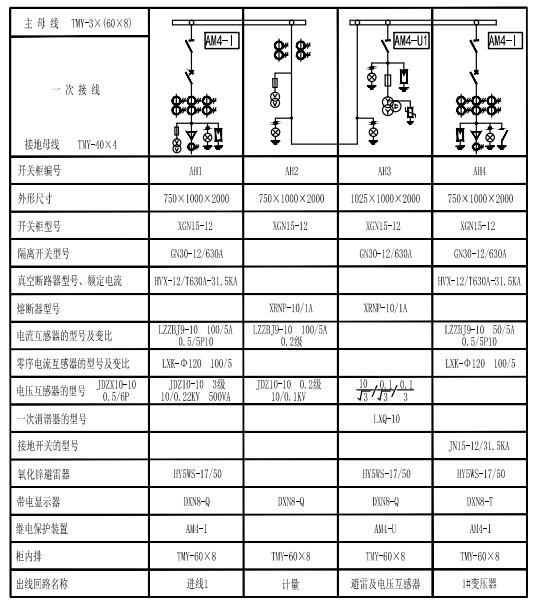 主母线 TMY-3×(60×8)
AM4-I
AM4-U1
AM4-I
一次接线
接地母线 TMY-40×4
开关柜编号 AH1 AH2 AH3 AH4
外形尺寸 750×1000×2000 750×1000×2000 1025×1000×2000 750×1000×2000
开关柜型号 XGN15-12 XGN15-12 XGN15-12 XGN15-12
隔离开关型号 GN30-12/630A GN30-12/630A GN30-12/630A
真空断路器型号、额定电流 HVX-12/T630A-31.5KA HVX-12/T630A-31.5KA
熔断器型号 XRNP-10/1A XRNP-10/1A
电流互感器的型号及变比 LZZBJ9-10 100/5A 0.5/5P10 LZZBJ9-10 100/5A 0.2级 LZZBJ9-10 50/5A 0.5/5P10
零序电流互感器的型号及变比 LXK-Φ120 100/5 LXK-Φ120 100/5
电压互感器的型号 JDZX10-10 0.5/6P JDZ10-10 3级 10/0.22KV 500VA JDZ10-10 0.2级 10/0.1KV 10/√3/0.1/√3/0.1/3
一次消谐器的型号 LXQ-10
接地开关的型号 JN15-12/31.5KA
氧化锌避雷器 HY5WS-17/50 HY5WS-17/50 HY5WS-17/50
带电显示器 DXN8-Q DXN8-Q DXN8-Q DXN8-T
继电保护装置 AM4-I AM4-U AM4-I
柜内排 TMY-60×8 TMY-60×8 TMY-60×8 TMY-60×8
出线回路名称 进线1 计量 避雷及电压互感器 1#变压器